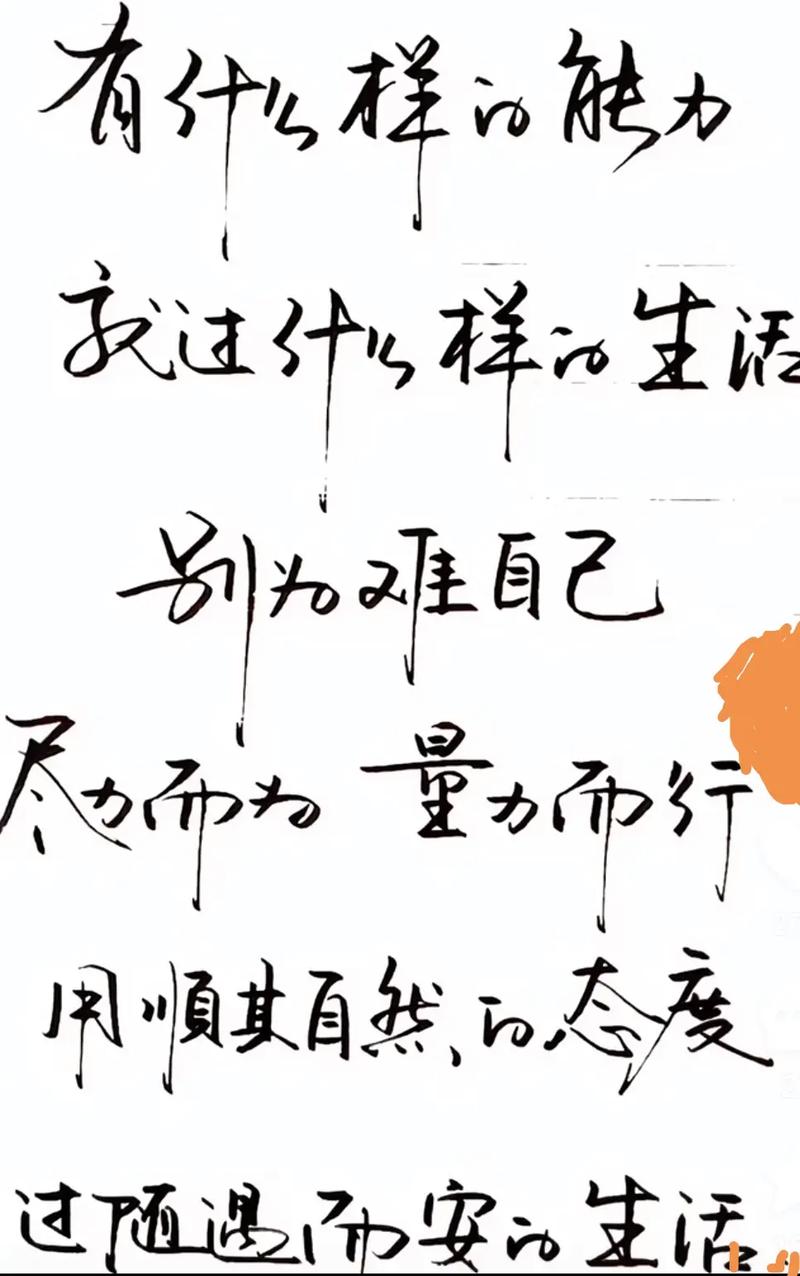 有什么样的能力
就过什么样的生活
别为难自己
尽力而为 量力而行
用顺其自然的态度
过随遇而安的生活